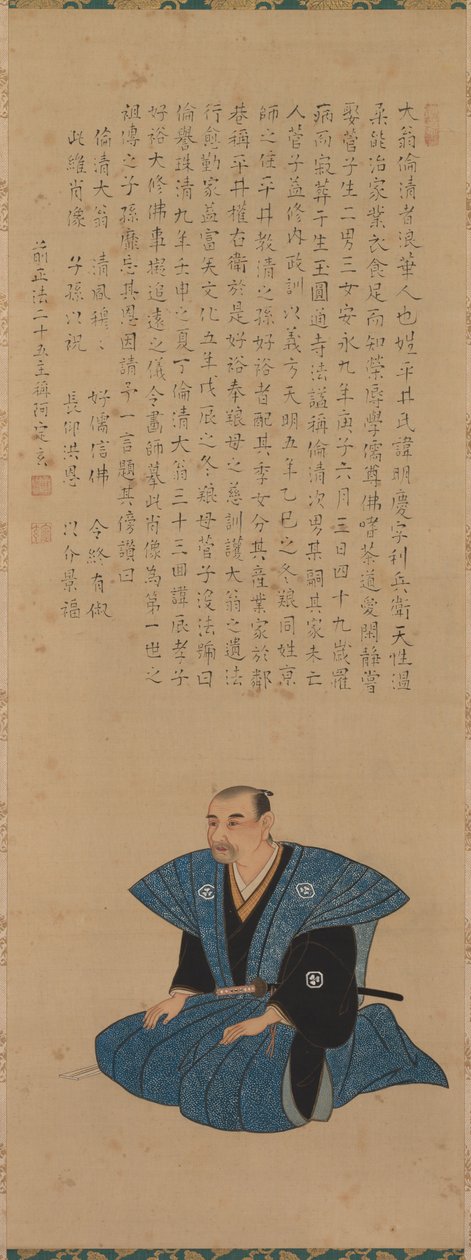 大翁倫清者浪華人也姓平井氏諱明慶字利兵衛天性温
柔能治家業衣食足而知榮辱學儒尊佛嗜茶道愛閑静嘗
娶菅子生二男三女安永九年庚子六月三日四十九歳罹
病而寂葬于生玉圓通寺法謚稱倫清次男某嗣其家未亡
人菅子益修内政訓以義方天明五年乙巳之冬娘同姓京
師之住平井教清之孫好裕者配其季女分其産業家於鄰
巷稱平井權右衛於是好裕奉娘母之慈訓護大翁之遺法
行愈勤家益富矣文化五年戊辰之冬娘母菅子没法號曰
倫譽珠清九年壬申之夏丁倫清大翁三十三回諱辰孝子
好裕大修佛事擬追遠之儀令畫師摹此肖像為第一世之
祖傳之子孫靡忘其恩因請予一言題其傍讃曰
倫清大翁 清風穆々 好儒信佛 令終有俶
此維肖像 子孫以祝 長仰洪恩 以介景福
前正法二十五主稱阿定玄